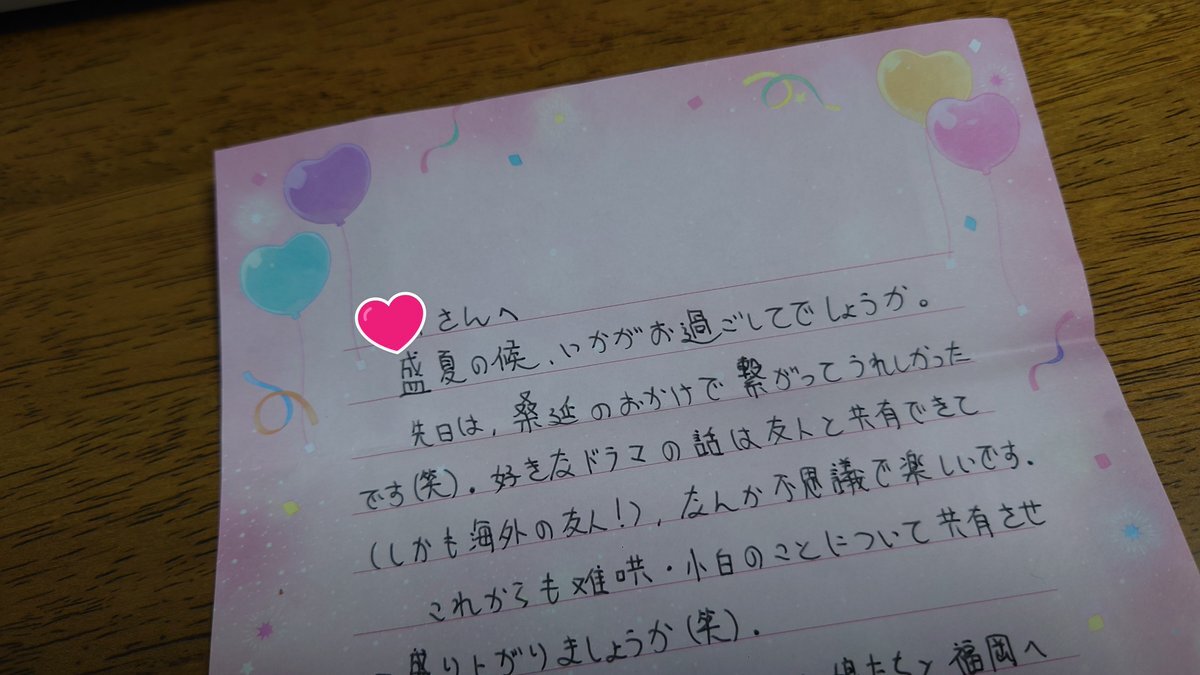 さんへ
盛夏の候、いかがお過ごしてでしょうか。
先日は、桑延のおかけで繋がってうれしかった
です(笑)。好きなドラマの話は友人と共有できて
(しかも海外の友人!)、なんか不思議で楽しいです.
これからも难哄・小白のことについて共有させ
盛り上がりましょうか(笑).
福岡へ